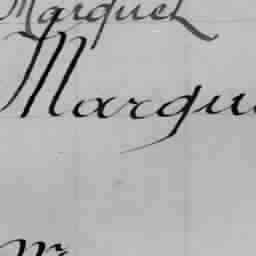 Marquet
Marqu